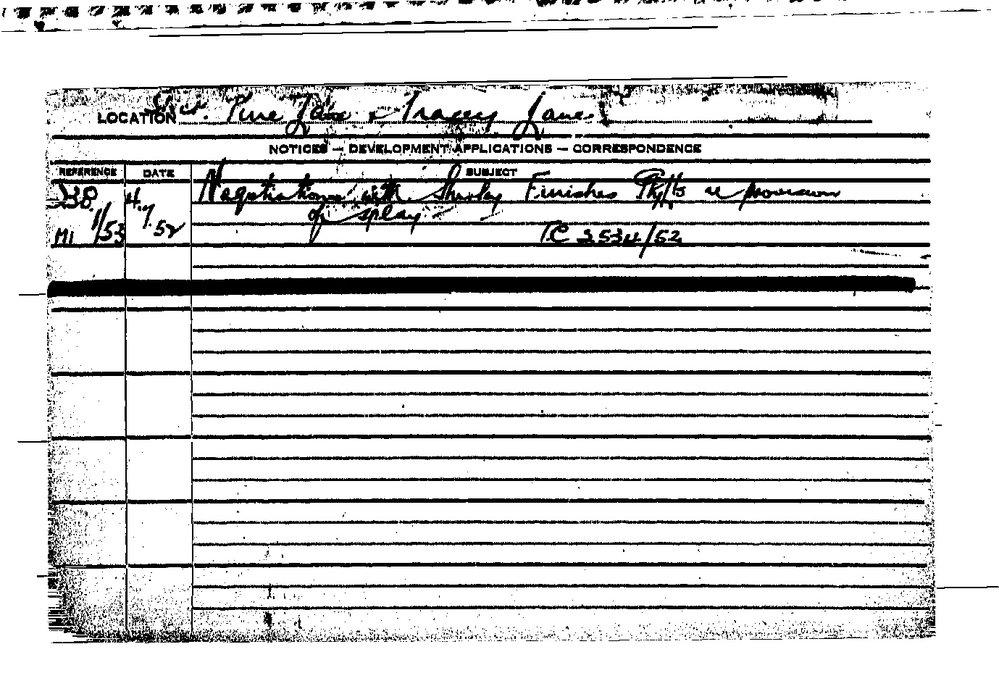 LOCATION Cnr. Pine Lane & Tracey Lane.
NOTICES — DEVELOPMENT APPLICATIONS — CORRESPONDENCE
REFERENCE DATE SUBJECT
Negotiations with Shirley Finishes P/L re provision
of splay
M1 1/53 4.7.52 T.C 2534/52